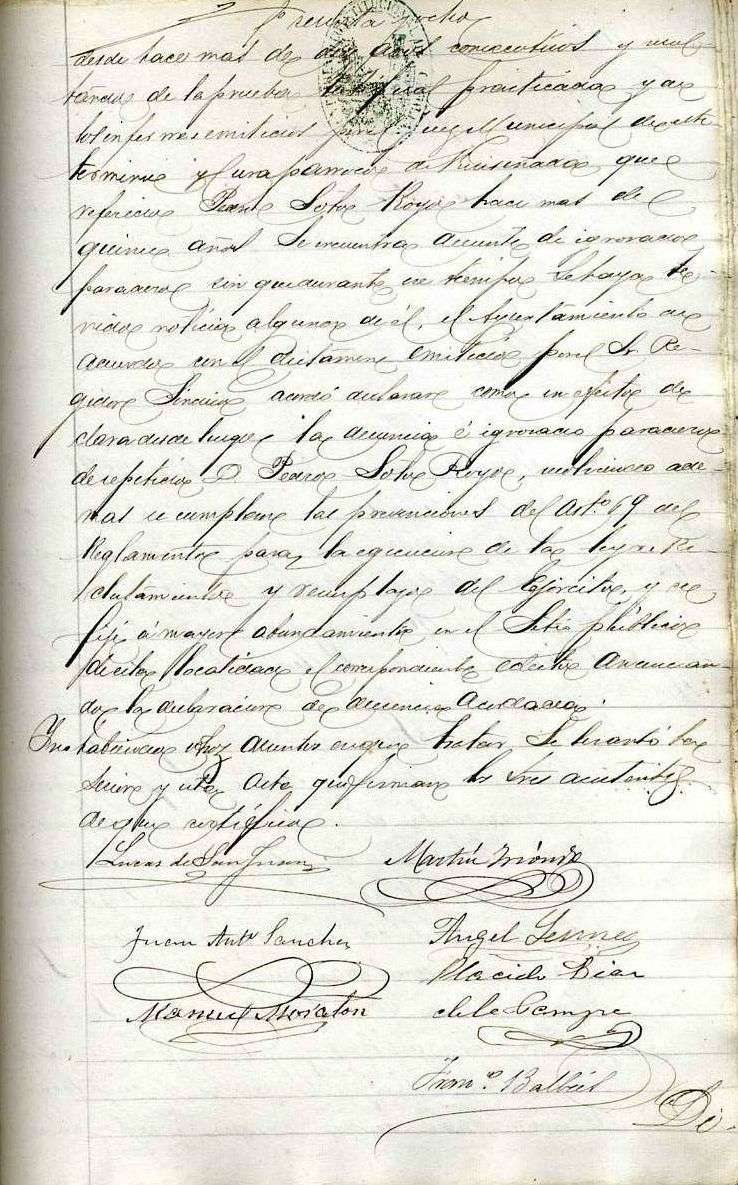 desde hace mas de diez años consecutivos y resul-
tando de la prueba testifical practicada y de
los informes emitidos por el Juez Municipal de este
termino y Cura parroco de que el
referido Pedro Soto Royo hace mas de
quince años se encuentra ausente de ignorado
paradero sin que durante ese tiempo se haya te-
nido noticia alguna de él, el Ayuntamiento de
acuerdo con el dictamen emitido por el Sr. Re-
gidor Sindico acordó declarar como en efecto de
clara desde luego la ausencia é ignorado paradero
de repetido D. Pedro Soto Royo, ade-
mas se cumplan las prevenciones del Artº 69 del
Reglamento para la egecucion de la ley de Re-
clutamiento y reemplazo del Egército, y se
fije á mayor abundamiento en el Sitio público
de esta localidad el correspondiente edicto anuncian-
do la declaracion de ausencia acordada.
Y no habiendo otros asuntos en que tratar, se levantó la
sesion y esta Acta que firman los Sres asistentes
de que certifico.
Lucas de San Juan Martin
Juan Antº Sanchez Angel
Manuel Moraton Placido Diaz
del Campo
Francº Balbiel
Di-